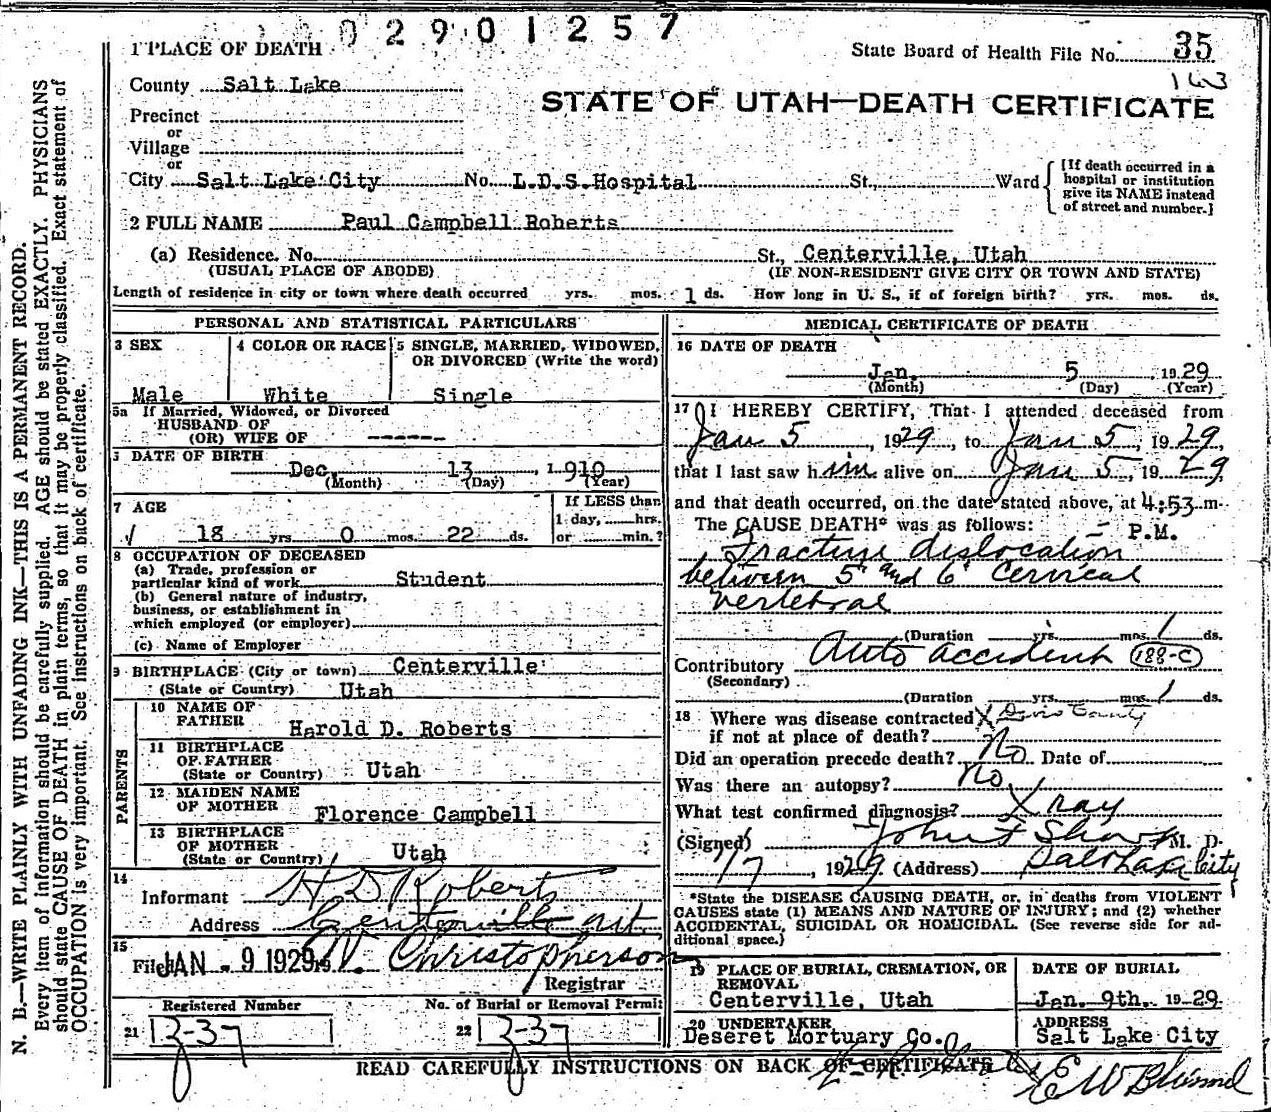 02901257
1 PLACE OF DEATH
State Board of Health File No. 35
143
County Salt Lake
STATE OF UTAH—DEATH CERTIFICATE
Precinct
or
Village
or
City Salt Lake City No. L.D.S. Hospital St., Ward
[If death occurred in a
hospital or institution
give its NAME instead
of street and number.]
2 FULL NAME Paul Campbell Roberts
(a) Residence. No. St., Centerville, Utah
(USUAL PLACE OF ABODE) (IF NON-RESIDENT GIVE CITY OR TOWN AND STATE)
Length of residence in city or town where death occurred yrs. mos. 1 ds. How long in U. S., if of foreign birth? yrs. mos. ds.
PERSONAL AND STATISTICAL PARTICULARS
3 SEX
Male
4 COLOR OR RACE
White
5 SINGLE, MARRIED, WIDOWED,
OR DIVORCED (Write the word)
Single
5a If Married, Widowed, or Divorced
HUSBAND OF
(OR) WIFE OF -------
6 DATE OF BIRTH
Dec. 13 , 1910
(Month) (Day) (Year)
7 AGE
18 yrs. 0 mos. 22 ds.
If LESS than
1 day, hrs.
or min.?
8 OCCUPATION OF DECEASED
(a) Trade, profession or
particular kind of work Student
(b) General nature of industry,
business, or establishment in
which employed (or employer)
(c) Name of Employer
9 BIRTHPLACE (City or town) Centerville
(State or Country) Utah
PARENTS
10 NAME OF
FATHER Harold D. Roberts
11 BIRTHPLACE
OF FATHER
(State or Country) Utah
12 MAIDEN NAME
OF MOTHER Florence Campbell
13 BIRTHPLACE
OF MOTHER
(State or Country) Utah
14
Informant H D Roberts
Address Centerville ut
15
Filed JAN - 9 1929 19 N. Christopherson
Registrar
Registered Number No. of Burial or Removal Permit
21 Z-37 22 Z-37
MEDICAL CERTIFICATE OF DEATH
16 DATE OF DEATH
Jan. 5 , 1929
(Month) (Day) (Year)
17 I HEREBY CERTIFY, That I attended deceased from
Jan 5 , 1929 , to Jan 5 , 1929
that I last saw him alive on Jan 5 , 1929
and that death occurred, on the date stated above, at 4:53 m.
The CAUSE DEATH* was as follows: - P.M.
Fracture dislocation
between 5 and 6 Cervical
vertebral
(Duration yrs. mos. 1 ds.
Contributory Auto accident 188-C
(Secondary)
(Duration yrs. mos. 1 ds.
18 Where was disease contracted X Davis County
if not at place of death?
Did an operation precede death? No Date of
Was there an autopsy? No
What test confirmed diagnosis? X ray
(Signed) John F Sharp M. D.
1/7 , 1929 (Address) Salt Lake City
*State the DISEASE CAUSING DEATH, or, in deaths from VIOLENT
CAUSES state (1) MEANS AND NATURE OF INJURY; and (2) whether
ACCIDENTAL, SUICIDAL OR HOMICIDAL. (See reverse side for ad-
ditional space.)
19 PLACE OF BURIAL, CREMATION, OR
REMOVAL
Centerville, Utah
DATE OF BURIAL
Jan. 9th. 1929
20 UNDERTAKER
Deseret Mortuary Co.
ADDRESS
Salt Lake City
READ CAREFULLY INSTRUCTIONS ON BACK OF CERTIFICATE
N. B.—WRITE PLAINLY WITH UNFADING INK—THIS IS A PERMANENT RECORD.
Every item of information should be carefully supplied. AGE should be stated EXACTLY. PHYSICIANS
should state CAUSE OF DEATH in plain terms, so that it may be properly classified. Exact statement of
OCCUPATION is very important. See instructions on back of certificate.